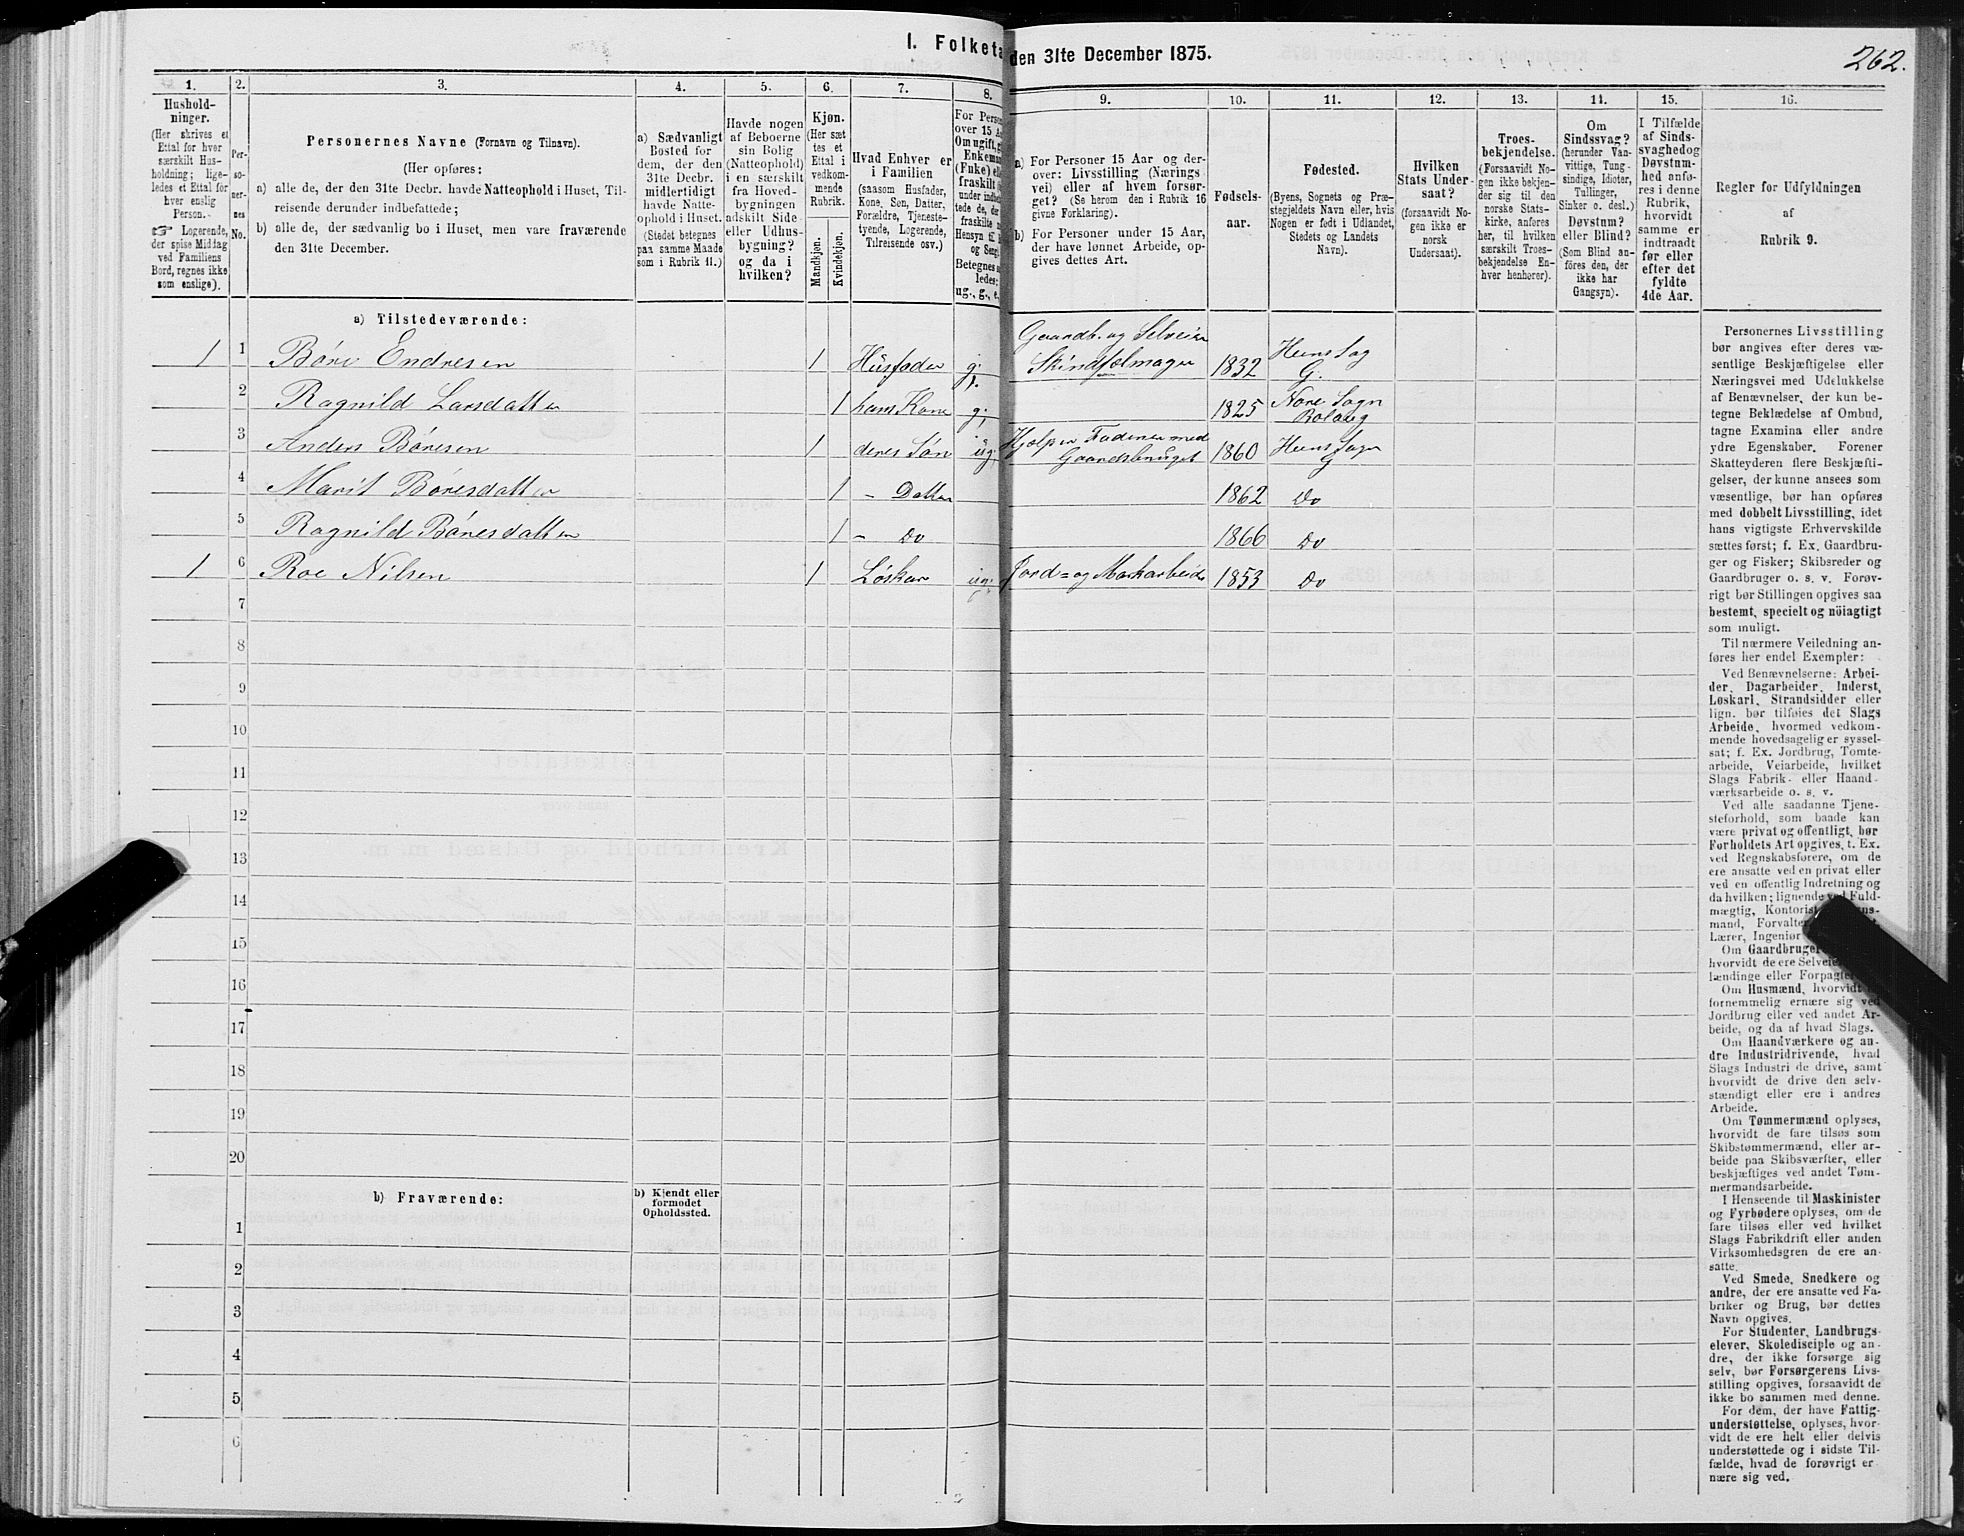 I. Folketa
den 31te December 1875.
262.
1.
Hushold-
ninger.
(Her skrives et
Ettal for hver
særskilt Hus-
holdning; lige-
ledes et Ettal for
hver enslig
Person.
☞ Logerende,
der spise Middag
ved Familiens
Bord, regnes ikke
som enslige).
2.
Per-
so-
ner-
nes
No.
3.
Personernes Navne (Fornavn og Tilnavn).
(Her opføres:
a) alle de, der den 31te Decbr. havde Natteophold i Huset, Til-
reisende derunder indbefattede;
b) alle de, der sædvanlig bo i Huset, men vare fraværende
den 31te December.
4.
a) Sædvanligt
Bosted for
dem, der den
31te Decbr.
midlertidigt
havde Natte-
ophold i Huset.
(Stedet betegnes
paa samme Maade
som i Rubrik 11.)
5.
Havde nogen
af Beboerne
sin Bolig
(Natteophold)
i en særskilt
fra Hoved-
bygningen
adskilt Side-
eller Udhus-
bygning?
og da i
hvilken?
6.
Kjøn.
(Her sæt
tes et
Ettal i
vedkom-
mende
Rubrik.
Mandkjøn.
Kvindekjøn.
7.
Hvad Enhver er
i Familien
(saasom Husfader,
Kone, Søn, Datter,
Forældre, Tjeneste-
tyende, Logerende,
Tilreisende osv.)
8.
For Person
over 15 Aa
Om ugift, g
Enkeman
(Enke) elle
fraskilt
under indbe
tede de, der
fraskilte
Hensyn til
og Seng.
Betegnes
ledes:
ug., g., e.
9.
a) For Personer 15 Aar og der-
over: Livsstilling (Nærings
vei) eller af hvem forsør-
get? (Se herom den i Rubrik 16
givne Forklaring).
b) For Personer under 15 Aar,
der have lønnet Arbeide, op-
gives dettes Art.
10.
Fødsels-
aar.
11.
Fødested.
(Byens, Sognets og Præ-
stegjeldets Navn eller, hvis
Nogen er født i Udlandet,
Stedets og Landets
Navn).
12.
Hvilken
Stats Under-
saat?
(forsaavidt No-
gen ikke er
norsk
Undersaat).
13.
Troes-
bekjendelse.
(Forsaavidt No-
gen ikke bekjen-
der sig til den
norske Stats-
kirke, anføres
her, til hvilken
særskilt Troes-
bekjendelse En-
hver henhører).
14.
Om
Sindssvag?
(herunder Van-
vittige, Tung-
sindige, Idioter,
Tullinger,
Sinker o. desl.)
Døvstum?
eller Blind?
(Som Blind an-
føres den, der
ikke har
Gangsyn).
15.
I Tilfælde
af Sinds-
svaghed og
Døvstum-
hed anfø-
res i denne
Rubrik,
hvorvidt
samme er
indtraadt
før eller
efter det
fyldte
4de Aar.
16.
Regler for Udfyldningen
af
Rubrik 9.
a) Tilstedeværende:
1 1 Børe Endresen 1 Husfader g. Gaardb. og Selveier
Skindfælmager 1832 Hens Sog
G.
2 Ragnild Larsdatter 1 hans Kone g. 1825 Nore Sogn
3 Anders Børesen 1 deres Søn ug. Hjelper Faderen med
Gaardsbruget 1860 Hens Sogn
G
4 Marit Børesdatter 1 - Datter 1862 Do
5 Ragnild Børesdatter 1 - Do 1866 Do
1 6 Roe Nilsen 1 Løskar ug. Jord- og Markarbeide 1853 Do
7
8
9
10
11
12
13
14
15
16
17
18
19
20
b) Fraværende:
b) Kjendt eller
formodet
Opholdssted.
1
2
3
4
5
6
Personernes Livsstilling
bør angives efter deres væ-
sentlige Beskjæftigelse eller
Næringsvei med Udelukkelse
af Benævnelser, der kun be-
tegne Beklædelse af Ombud,
tagne Examina eller andre
ydre Egenskaber. Forener
Skatteyderen flere Beskjæfti-
gelser, der kunne ansees som
væsentlige, bør han opføres
med dobbelt Livsstilling, idet
hans vigtigste Erhvervskilde
sættes først; f. Ex. Gaardbru-
ger og Fisker; Skibsreder og
Gaardbruger o. s. v. Forøv-
rigt bør Stillingen opgives saa
bestemt, specielt og nöiagtigt
som muligt.
Til nærmere Veiledning an-
føres her endel Exempler:
Ved Benævnelserne: Arbei-
der, Dagarbeider, Inderst,
Løskarl, Strandsidder eller
lign. bør tilføies det Slags
Arbeide, hvormed vedkom-
mende hovedsagelig er syssel-
sat; f. Ex. Jordbrug, Tomte-
arbeide, Veiarbeide, hvilket
Slags Fabrik- eller Haand-
værksarbeide o. s. v.
Ved alle saadanne Tjene-
steforhold, som baade kan
være privat og offentligt, bør
Forholdets Art opgives, t. Ex.
ved Regnskabsførere, om de
ere ansatte ved en privat eller
ved en offentlig Indretning og
da hvilken; lignende ved Fuld-
mægtig, Kontorist
mand, Forvalter
Lærer, Ingeniør
Om Gaardbruger
hvorvidt de ere Selveie
lændinge eller Forpagte
Om Husmænd, hvorvidt
fornemmelig ernære sig ved
Jordbrug eller ved andet Ar-
beide, og da af hvad Slags.
Om Haandværkere og an-
dre Industridrivende, hvad
Slags Industri de drive, samt
hvorvidt de drive den selv-
stændigt eller ere i andres
Arbeide.
Om Tømmermænd oplyses,
hvorvidt de fare tilsøs som
Skibstømmermænd, eller ar-
beide paa Skibsværfter, eller
beskjæftiges ved andet Tøm-
mermandsarbeide.
I Henseende til Maskinister
og Fyrbødere oplyses, om de
fare tilsøs eller ved hvilket
Slags Fabrikdrift eller anden
Virksomhedsgren de ere an-
satte.
Ved Smede, Snedkere og
andre, der ere ansatte ved Fa-
briker og Brug, bør dettes
Navn opgives.
For Studenter, Landbrugs-
elever, Skoledisciple og an-
dre, der ikke forsørge sig
selv, bør Forsørgerens Livs-
stilling opgives, forsaavidt de
ikke bo sammen med denne.
For dem, der have Fattig-
understøttelse, oplyses, hvor-
vidt de ere helt eller delvis
understøttede og i sidste Til-
fælde, hvad de forøvrigt er-
nære sig ved.